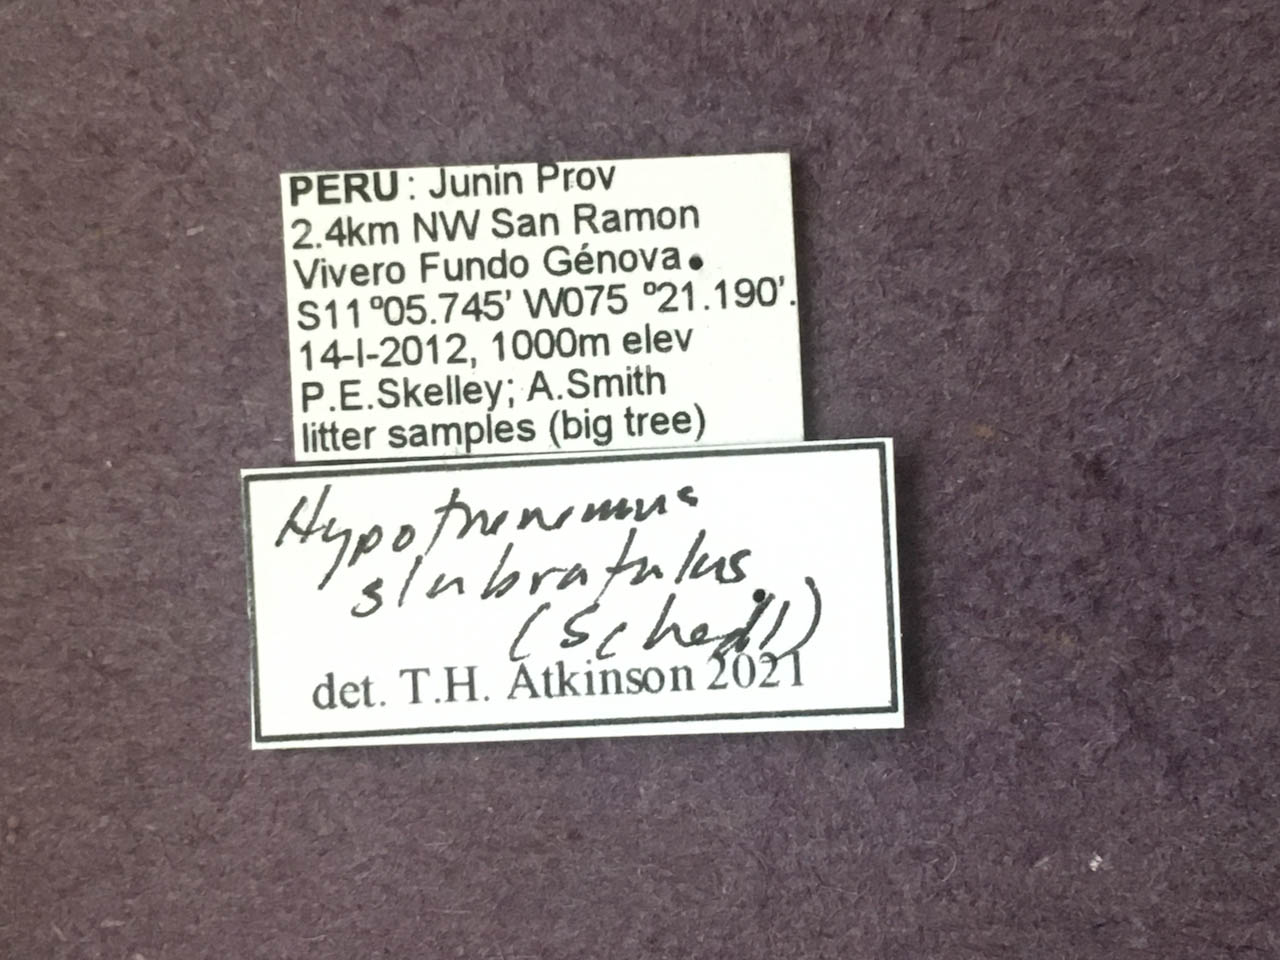 PERU: Junin Prov
2.4km NW San Ramon
Vivero Fundo Génova
S11º05.745' W075 º21.190'.
14-I-2012, 1000m elev
P.E.Skelley; A.Smith
litter samples (big tree)
Hypothenemus
(Schedl)
det. T.H. Atkinson 2021